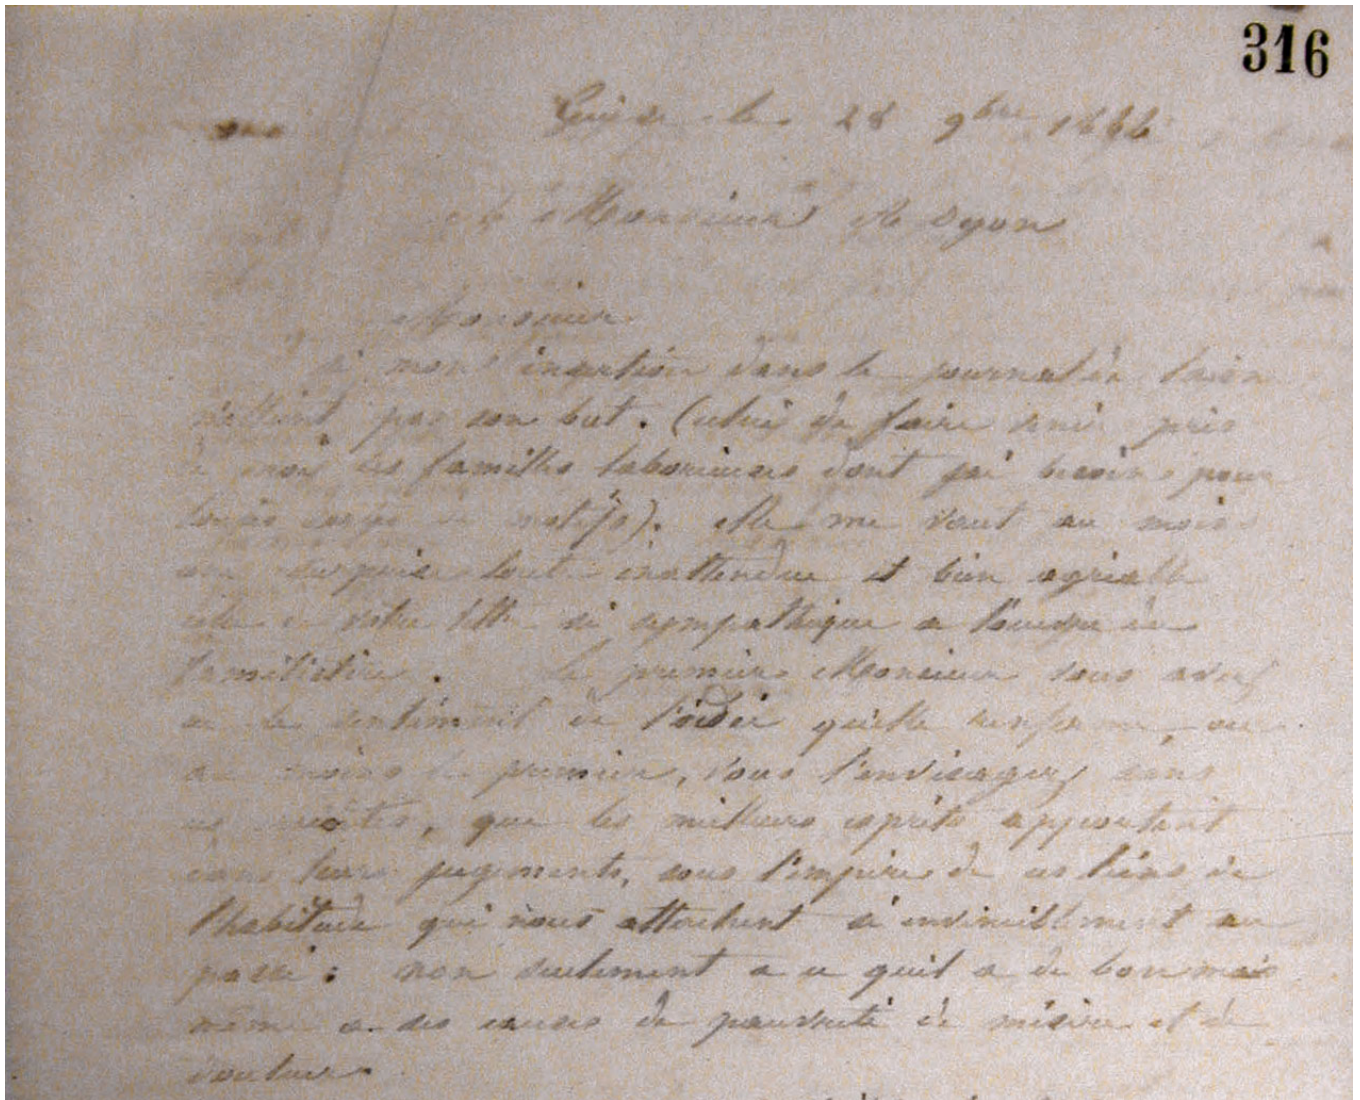 316
Guise le 28 9bre 1866
Monsieur de Dyon
Monsieur
Si mon insertion dans le journal de
n'atteint pas son but. (celui de faire venir près
de moi des familles laborieuses dont j'ai besoin pour
motifs). Elle me vaut au moins
une surprise tout inattendue et bien agréable
celle de votre lettre si sympathique a l'oeuvre du
familistère. Le premier Monsieur vous avez
eu le sentiment de l'idée qu'elle renferme, ou
au moins le premier, vous l'envisagez sans
ces que les meilleurs esprits apportent
dans leurs jugements, sous l'empire de ces liens de
l'habitude qui nous attachent si invinciblement au
passé : non seulement a ce quil a de bon mais
même a ses causes de pauvreté de misère et de
douleur.